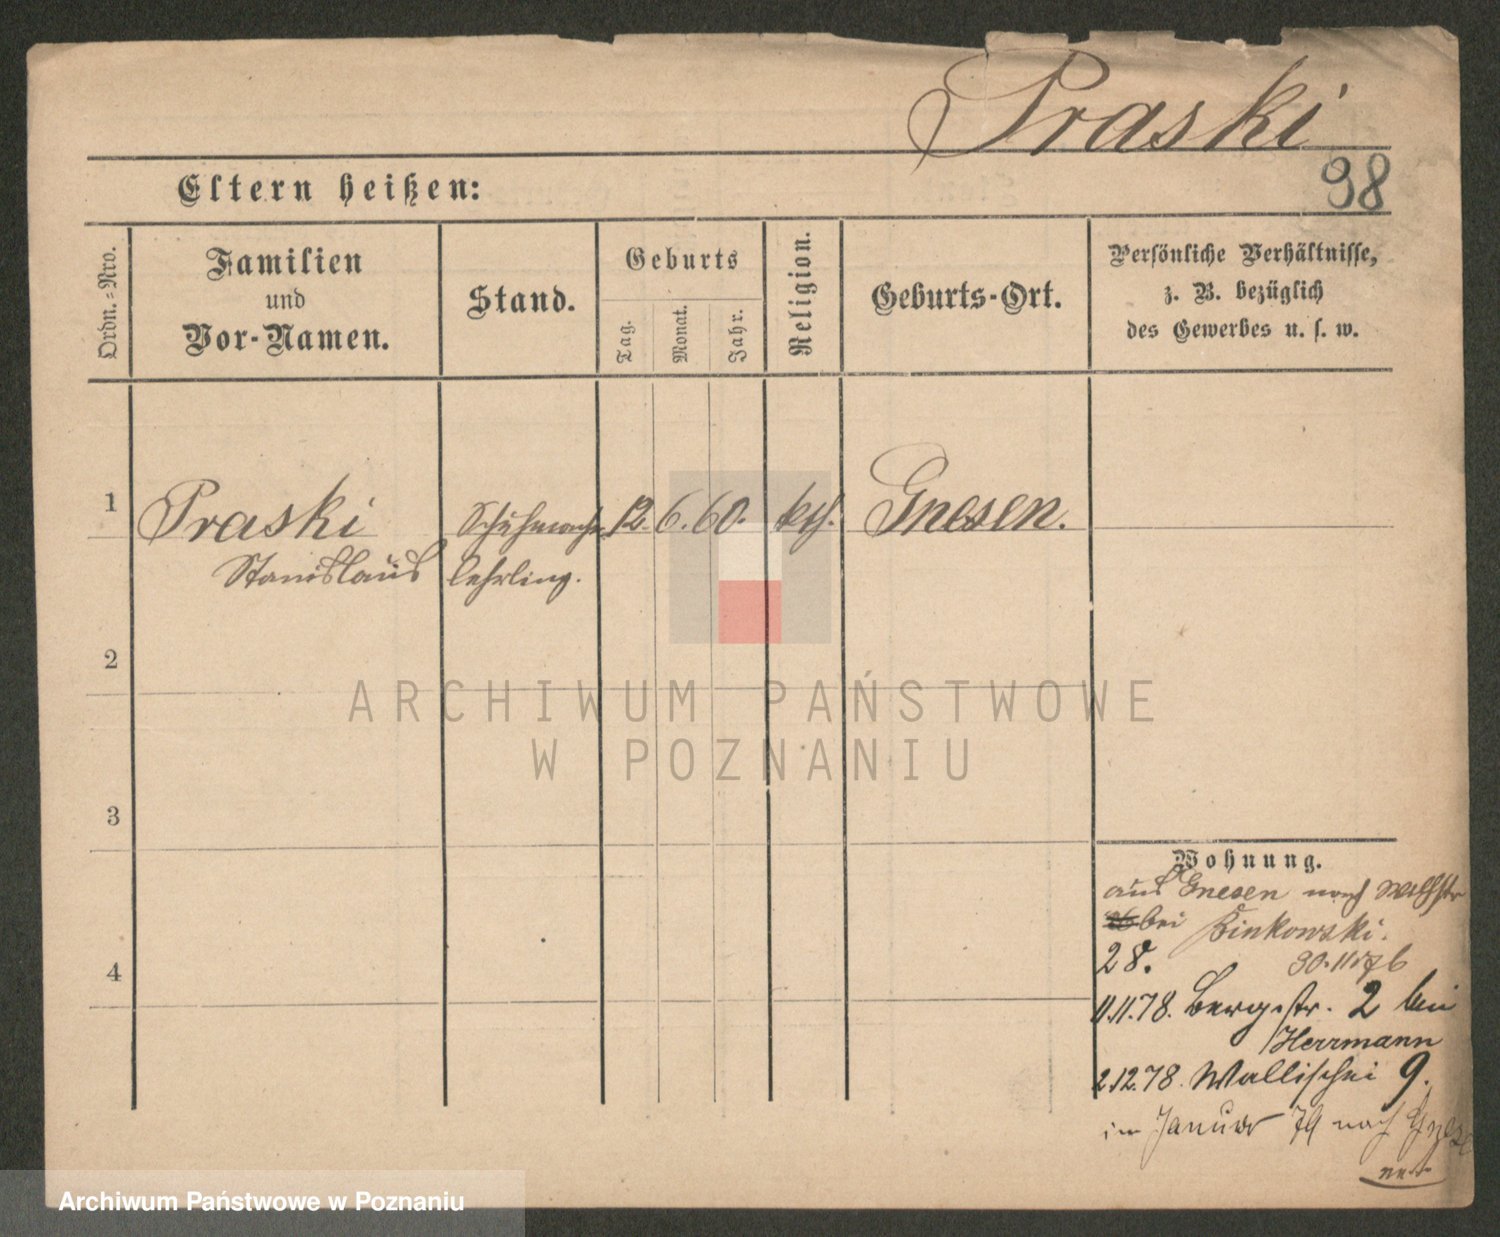 Praski
98
Eltern heißen:
Ordn.=Nro.
Familien
und
Vor-Namen.
Stand.
Geburts
Tag.
Monat.
Jahr.
Religion.
Geburts-Ort.
Persönliche Verhältnisse,
z. B. bezüglich
des Gewerbes u. s. w.
1
Praski
Stanislaus
Schuhmacher
lehrling.
12.
6.
60.
kth.
Gnesen.
2
3
4
Wohnung.
aus Gnesen nach
bei Binkowski.
28. 30.11.76
11.11.78. Bergstr. 2 bei
Herrmann
2.12.78. Wallischei 9.
im Januar 79 nach Gnesen
ARCHIWUM PAŃSTWOWE
W POZNANIU
Archiwum Państwowe w Poznaniu